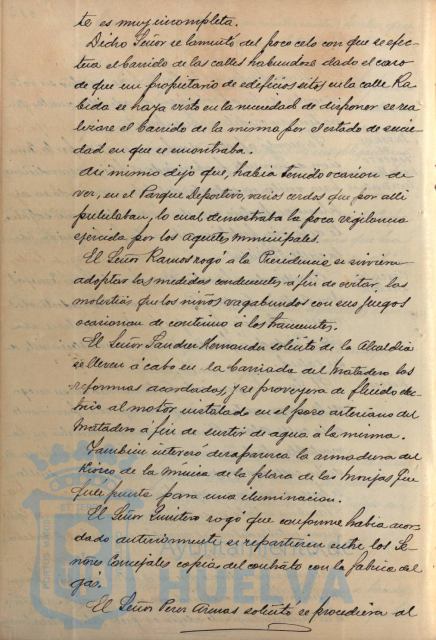 te es muy incompleta.
Dicho Señor se lamentó del poco celo con que se efec-
tua el barrido de las calles habiendose dado el caso
de que un propietario de edificios sitos en la calle Ra-
bida se haya visto en la necesidad de disponer se rea-
lizase el barrido de la misma por el estado de sucie-
dad en que se encontraba.
Asi mismo dijo que, habia tenido ocasion de
ver, en el Parque Deportivo, varios cerdos que por alli
pululaban, lo cual demostraba la poca vigilancia
ejercida por los agentes municipales.
El Señor Ramos rogó á la Presidencia se sirviera
adoptar las medidas conducentes á fin de evitar, las
molestias que los niños vagabundos con sus juegos
ocasionan de continuo á los transeuntes.
El Señor Sanchez Hernandez solicitó de la Alcaldia
se lleven á cabo en la barriada del Matadero las
reformas acordadas, y se proveyera de fluido elec-
trico al motor instalado en el pozo artesiano del
Matadero á fin de surtir de agua á la misma.
Tambien interesó desaparezca la armadura del
Kiosco de la Música de la plaza de las Monjas que
fué puesta para una iluminacion.
El Señor Quintero rogó que conforme habia acor-
dado anteriormente se repartiesen entre los Se-
ñores Concejales copias del contrato con la fabrica del
gas.
El Señor Perez Armas solicitó se procediera al
Ayuntamiento
HUELVA